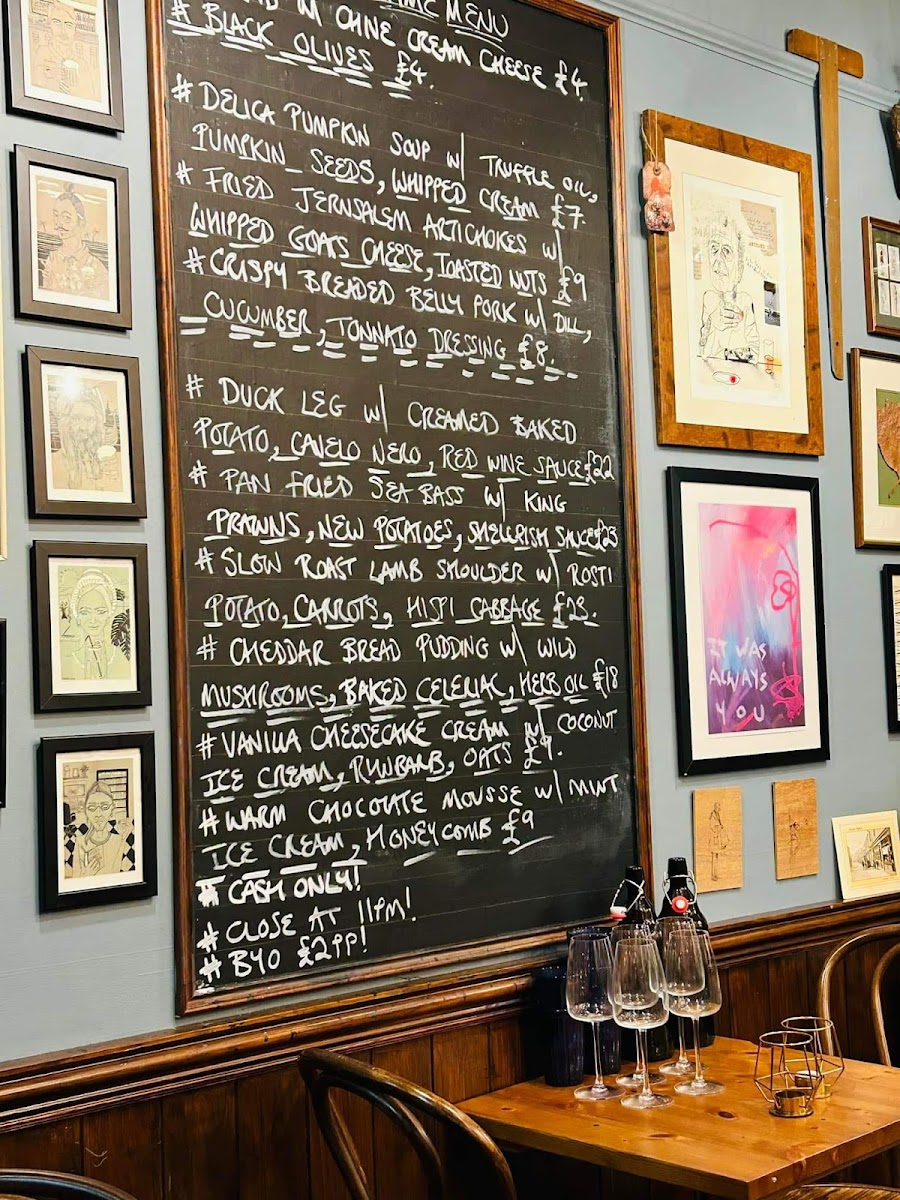 MENU
CHIVE CREAM CHEESE £4.
# BLACK OLIVES £4.
# DELICA PUMPKIN SOUP W/ TRUFFLE OIL,
PUMPKIN SEEDS, WHIPPED CREAM £7.
# FRIED JERUSALEM ARTICHOKES W/
WHIPPED GOATS CHEESE, TOASTED NUTS £9
# CRISPY BREADED BELLY PORK W/ DILL,
CUCUMBER, TONNATO DRESSING £8.
# DUCK LEG W/ CREAMED BAKED
POTATO, CAVELO NERO, RED WINE SAUCE £22
# PAN FRIED SEA BASS W/ KING
PRAWNS, NEW POTATOES, SHELLFISH SAUCE £23
# SLOW ROAST LAMB SHOULDER W/ ROSTI
POTATO, CARROTS, HISPI CABBAGE £23.
# CHEDDAR BREAD PUDDING W/ WILD
MUSHROOMS, BAKED CELERIAC, HERB OIL £18
# VANILLA CHEESECAKE CREAM W/ COCONUT
ICE CREAM, RHUBARB, OATS £9.
# WARM CHOCOLATE MOUSSE W/ MINT
ICE CREAM, HONEYCOMB £9
# CASH ONLY!
# CLOSE AT 11PM!
# BYO £2PP!
IT WAS
ALWAYS
YOU